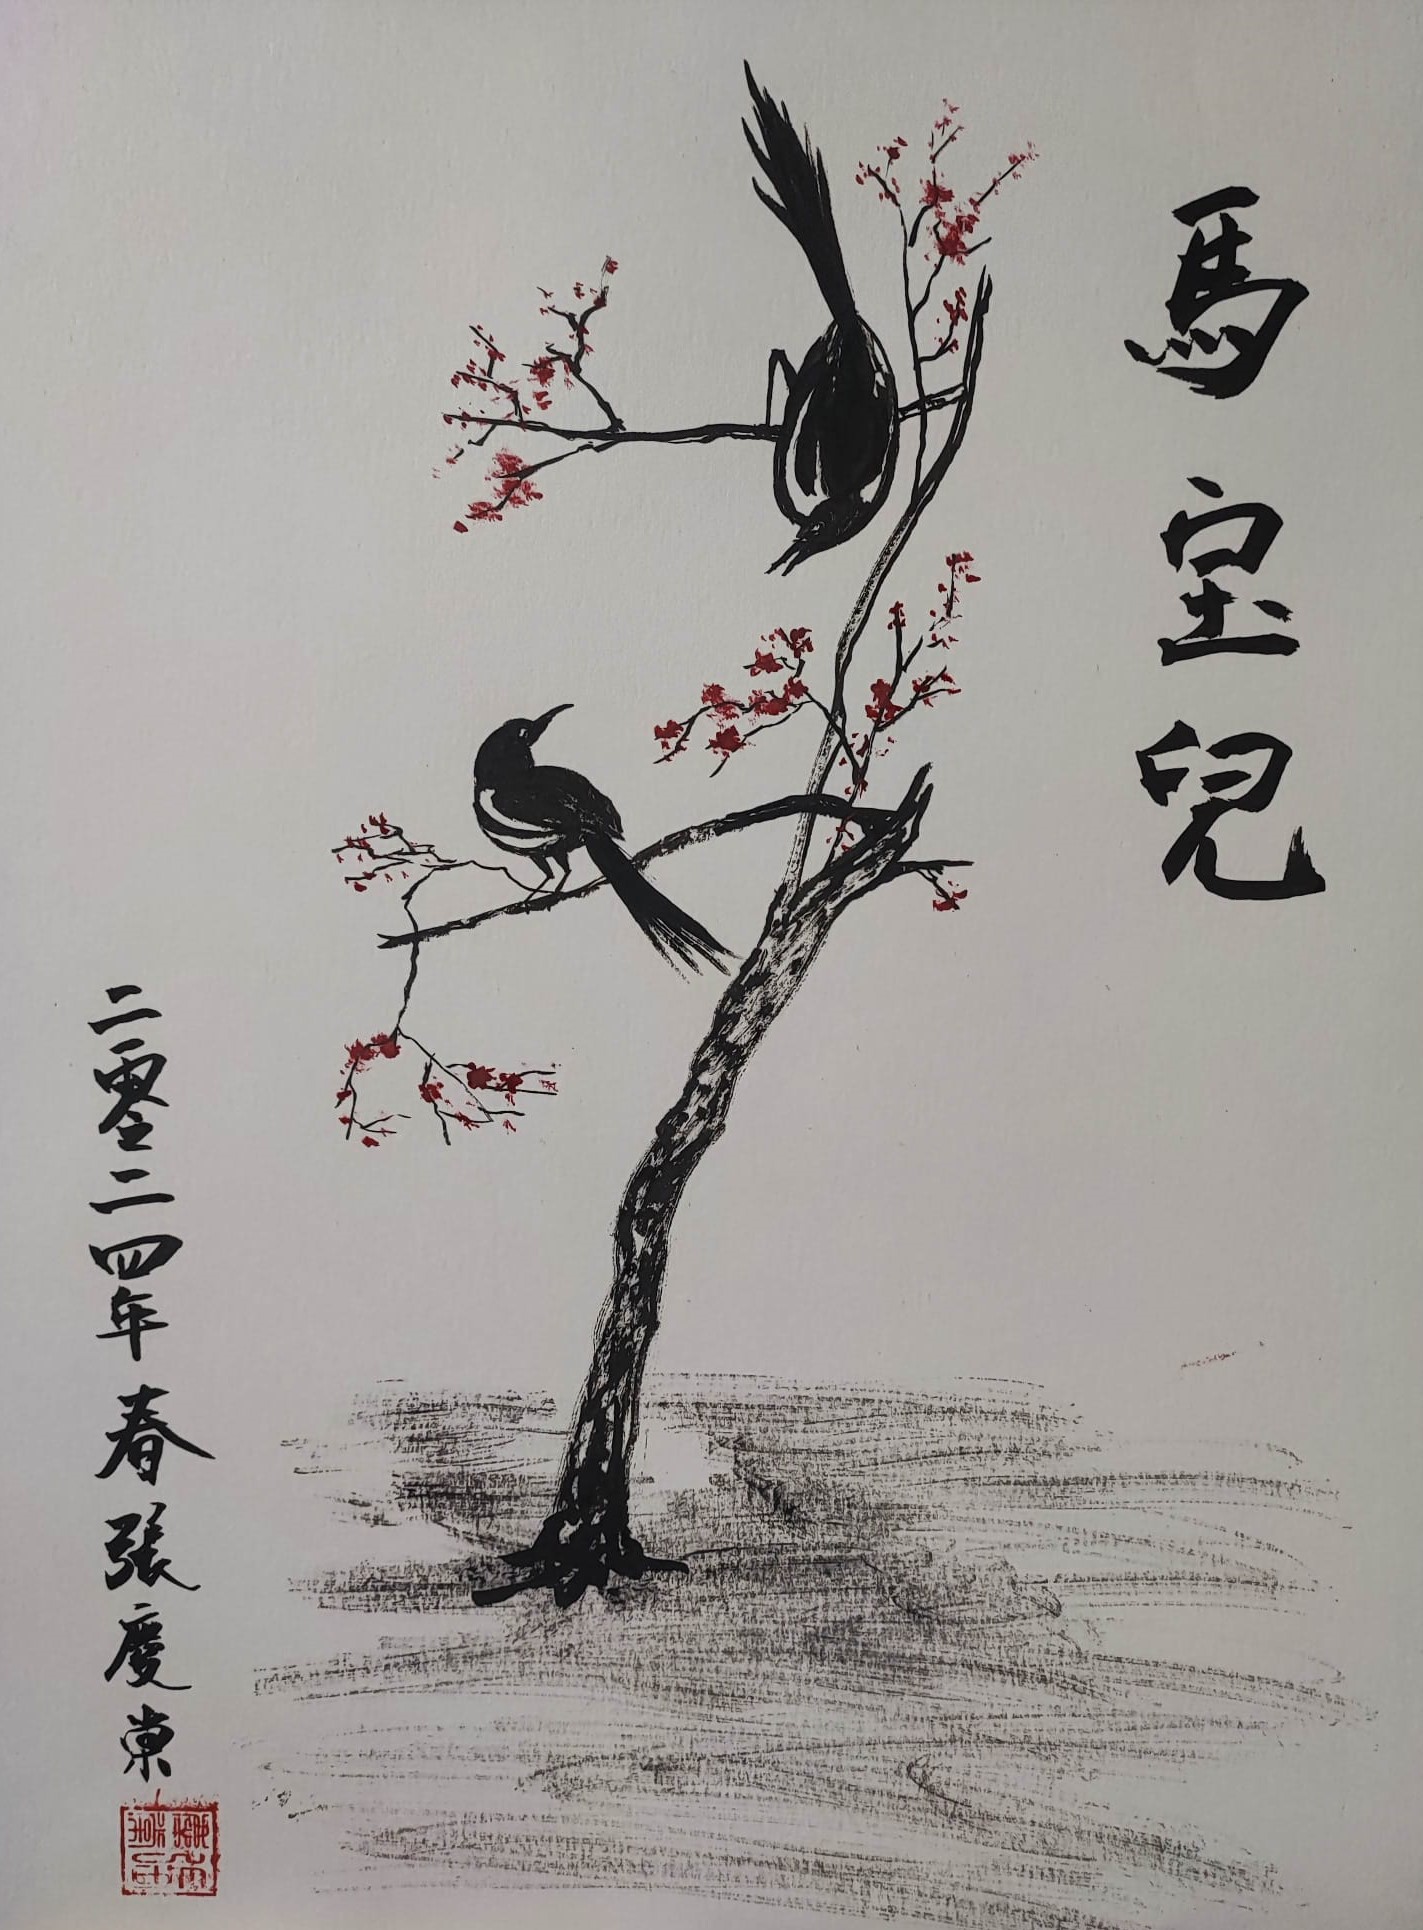 馬皇兒
二零二四年春張慶東